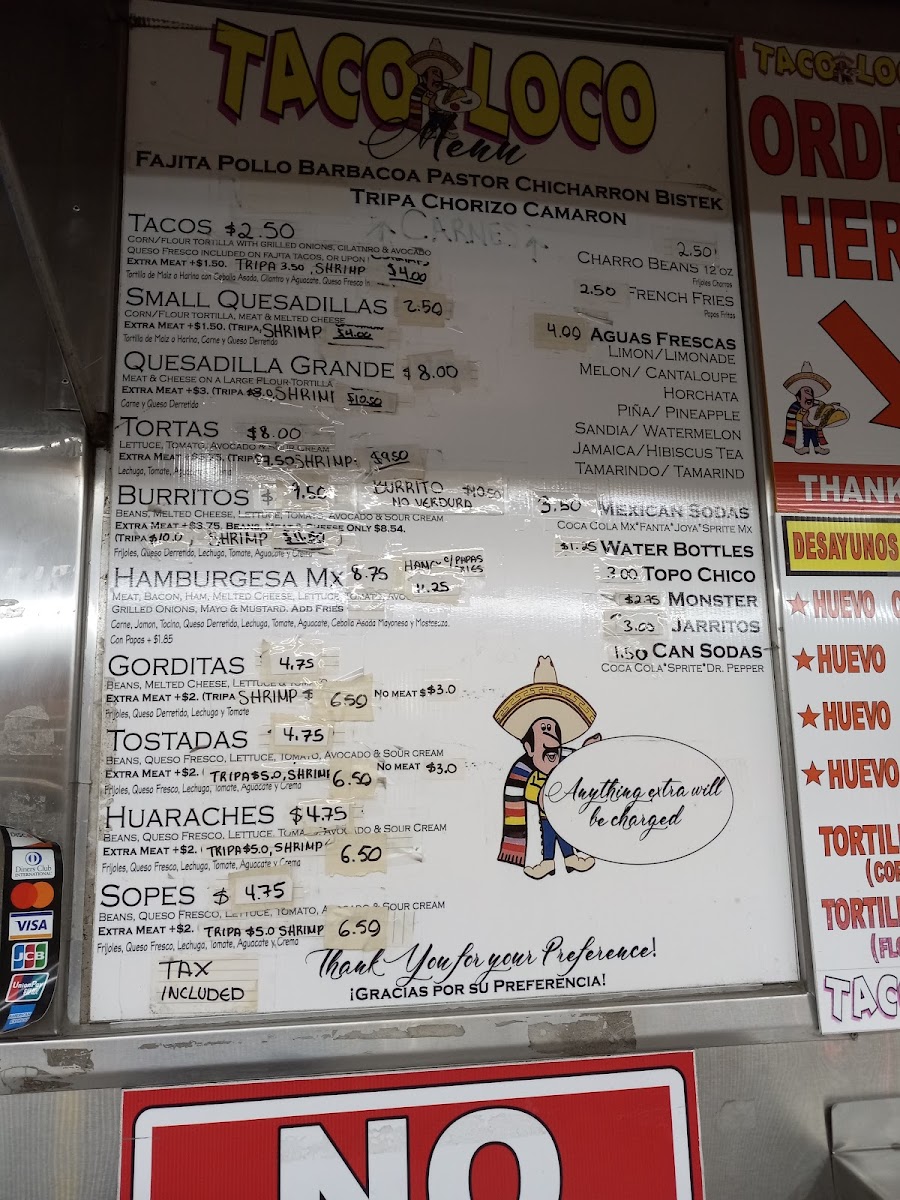 TACO LOCO
Menu
FAJITA POLLO BARBACOA PASTOR CHICHARRON BISTEK
TRIPA CHORIZO CAMARON
CARNES
TACOS $2.50
CORN/FLOUR TORTILLA WITH GRILLED ONIONS, CILATNRO & AVOCADO
QUESO FRESCO INCLUDED ON FAJITA TACOS, OR UPON
EXTRA MEAT +$1.50. TRIPA 3.50, SHRIMP $4.00
Tortilla de Maiz o Harina con Cebolla Asada, Cilantro y Aguacate, Queso Fresco
SMALL QUESADILLAS 2.50
CORN/FLOUR TORTILLA, MEAT & MELTED CHEESE
EXTRA MEAT +$1.50. (TRIPA, SHRIMP $4.00
Tortilla de Maiz o Harina, Carne y Queso Derretido
QUESADILLA GRANDE $8.00
MEAT & CHEESE ON A LARGE FLOUR TORTILLA
EXTRA MEAT +$3. (TRIPA $8.0, SHRIM $10.50
Carne y Queso Derretido
TORTAS $8.00
LETTUCE, TOMATO, AVOCADO CREAM
EXTRA MEAT $7.50 SHRIMP $9.50
Lechuga, Tomate, Crema
BURRITOS $ 9.50 BURRITO NO VERDURA $10.50
BEANS, MELTED CHEESE, LETTUCE, TOMATO, AVOCADO & SOUR CREAM
EXTRA MEAT +$3.75. BEANS, MEAT & CHEESE ONLY $8.54.
(TRIPA $10.0, SHRIMP $11.50
Frijoles, Queso Derretido, Lechuga, Tomate, Aguacate y Crema
HAMBURGESA MX 8.75 C/PAPAS 11.25
MEAT, BACON, HAM, MELTED CHEESE, LETTUCE, TOMATO,
GRILLED ONIONS, MAYO & MUSTARD. ADD FRIES
Carne, Jamon, Tocino, Queso Derretido, Lechuga, Tomate, Aguacate, Cebolla Asada Mayonesa y Mostasza.
Con Papas + $1.85
GORDITAS 4.75
BEANS, MELTED CHEESE, LETTUCE & TOMATO
EXTRA MEAT +$2. (TRIPA SHRIMP $ 6.50 NO MEAT $ $3.0
Frijoles, Queso Derretido, Lechuga y Tomate
TOSTADAS 4.75
BEANS, QUESO FRESCO, LETTUCE, TOMATO, AVOCADO & SOUR CREAM
EXTRA MEAT +$2. ( TRIPA $5.0, SHRIMP 6.50 NO MEAT $3.0
Frijoles, Queso Fresco, Lechuga, Tomate, Aguacate y Crema
HUARACHES $4.75
BEANS, QUESO FRESCO, LETTUCE, TOMATO, AVOCADO & SOUR CREAM
EXTRA MEAT +$2. ( TRIPA $5.0, SHRIMP 6.50
Frijoles, Queso Fresco, Lechuga, Tomate, Aguacate y Crema
SOPES $ 4.75
BEANS, QUESO FRESCO, LETTUCE, TOMATO, & SOUR CREAM
EXTRA MEAT +$2. ( TRIPA $5.0 SHRIMP 6.50
Frijoles, Queso Fresco, Lechuga, Tomate, Aguacate y Crema
TAX
INCLUDED
2.50
CHARRO BEANS 12 OZ
Frijoles Charros
2.50 FRENCH FRIES
Papas Fritas
4.00 AGUAS FRESCAS
LIMON/LIMONADE
MELON/ CANTALOUPE
HORCHATA
PIÑA/ PINEAPPLE
SANDIA/ WATERMELON
JAMAICA/HIBISCUS TEA
TAMARINDO/ TAMARIND
3.50 MEXICAN SODAS
COCA COLA MX*FANTA*JOYA*SPRITE MX
$1.25 WATER BOTTLES
3.00 TOPO CHICO
$2.75 MONSTER
3.00 JARRITOS
1.50 CAN SODAS
COCA COLA*SPRITE*DR. PEPPER
Anything extra will
be charged
Thank You for your Preference!
¡GRACIAS POR SU PREFERENCIA!
TACO LOC
ORDE
HER
THANK
DESAYUNOS
HUEVO
HUEVO
HUEVO
HUEVO
TORTIL
(CO
TORTIL
(FL
TAC
Diners Club
INTERNATIONAL
VISA
JCB
UnionPay
NO